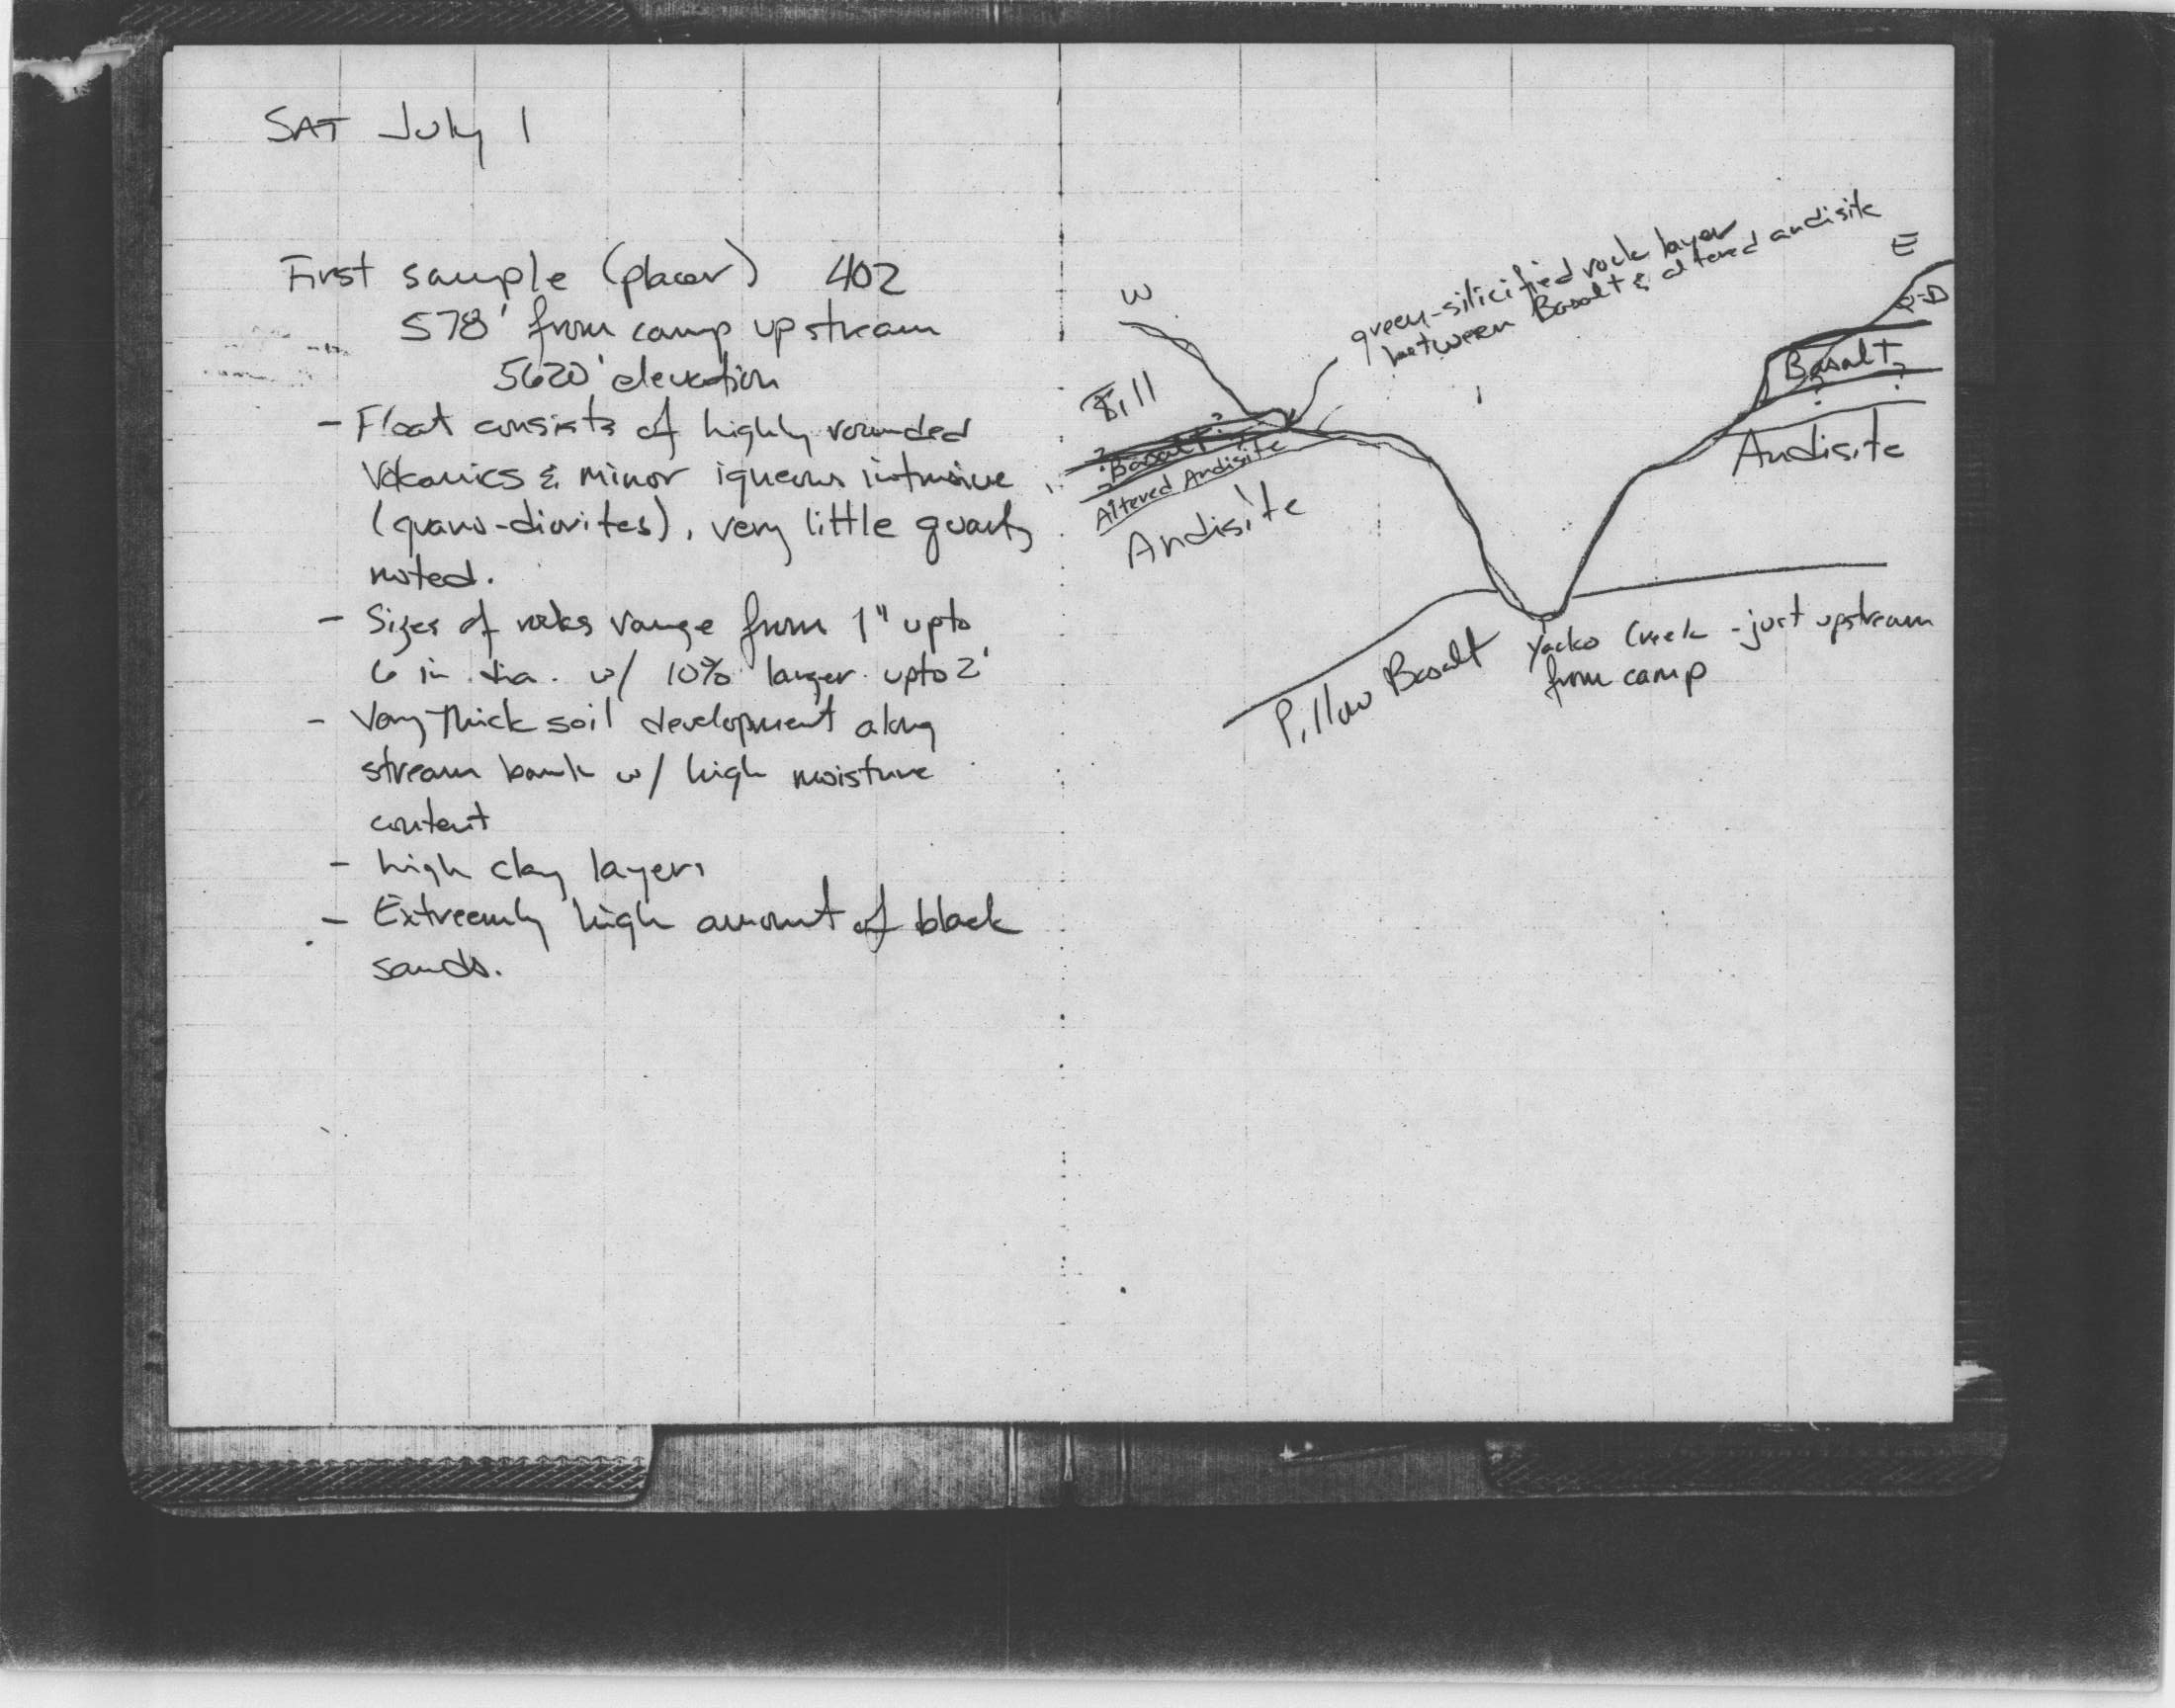 SAT July 1
First sample (placer) 402
578' from camp upstream
5620' elevation
- Float consists of highly rounded
Volcanics & minor igneous intrusive
(grano-diorites), very little quartz
noted.
- Sizes of rocks range from 1" upto
6 in. dia. w/ 10% larger upto 2'
- Very thick soil development along
stream bank w/ high moisture
content
- high clay layers
- Extreemly high amount of black
sands.
green-silicified rock layer
between Basalt & altered andisite
W
E
Q-D
Basalt
? ?
Till
? Basalt ?
Altered Andisite
Andisite
Andisite
Pillow Basalt
Yacko Creek - just upstream
from camp